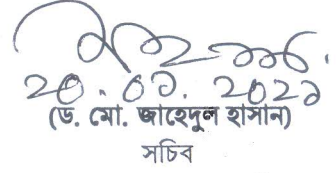 ২০.০১.২০২১
(ড. মো. জাহেদুল হাসান)
সচিব